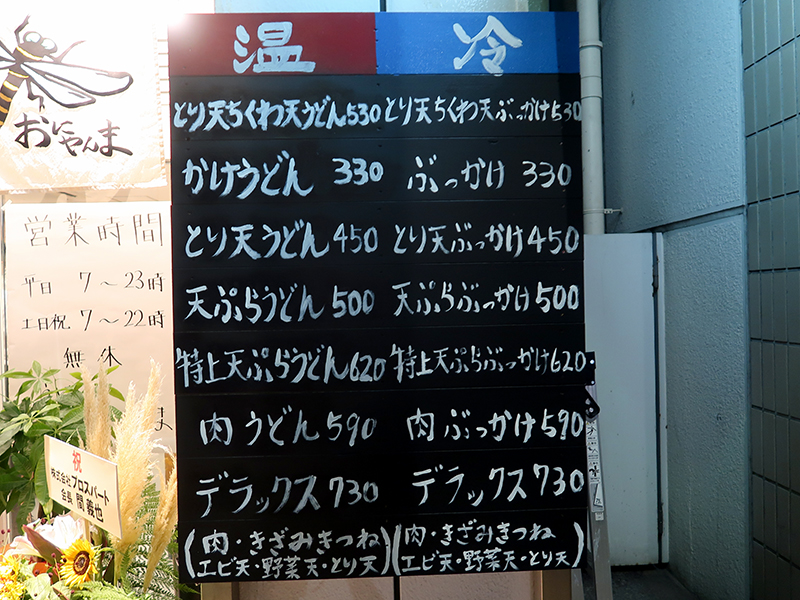 温 冷
とり天ちくわ天うどん530 とり天ちくわ天ぶっかけ530
かけうどん 330 ぶっかけ 330
とり天うどん450 とり天ぶっかけ450
天ぷらうどん500 天ぷらぶっかけ500
特上天ぷらうどん620 特上天ぷらぶっかけ620
肉うどん590 肉ぶっかけ590
デラックス730 デラックス730
(肉・きざみきつね (肉・きざみきつね
エビ天・野菜天・とり天) エビ天・野菜天・とり天)
おにやんま
営業時間
平日 7〜23時
土日祝 7〜22時
無休
ま
祝
株式会社プロスパート
会長 間 義也